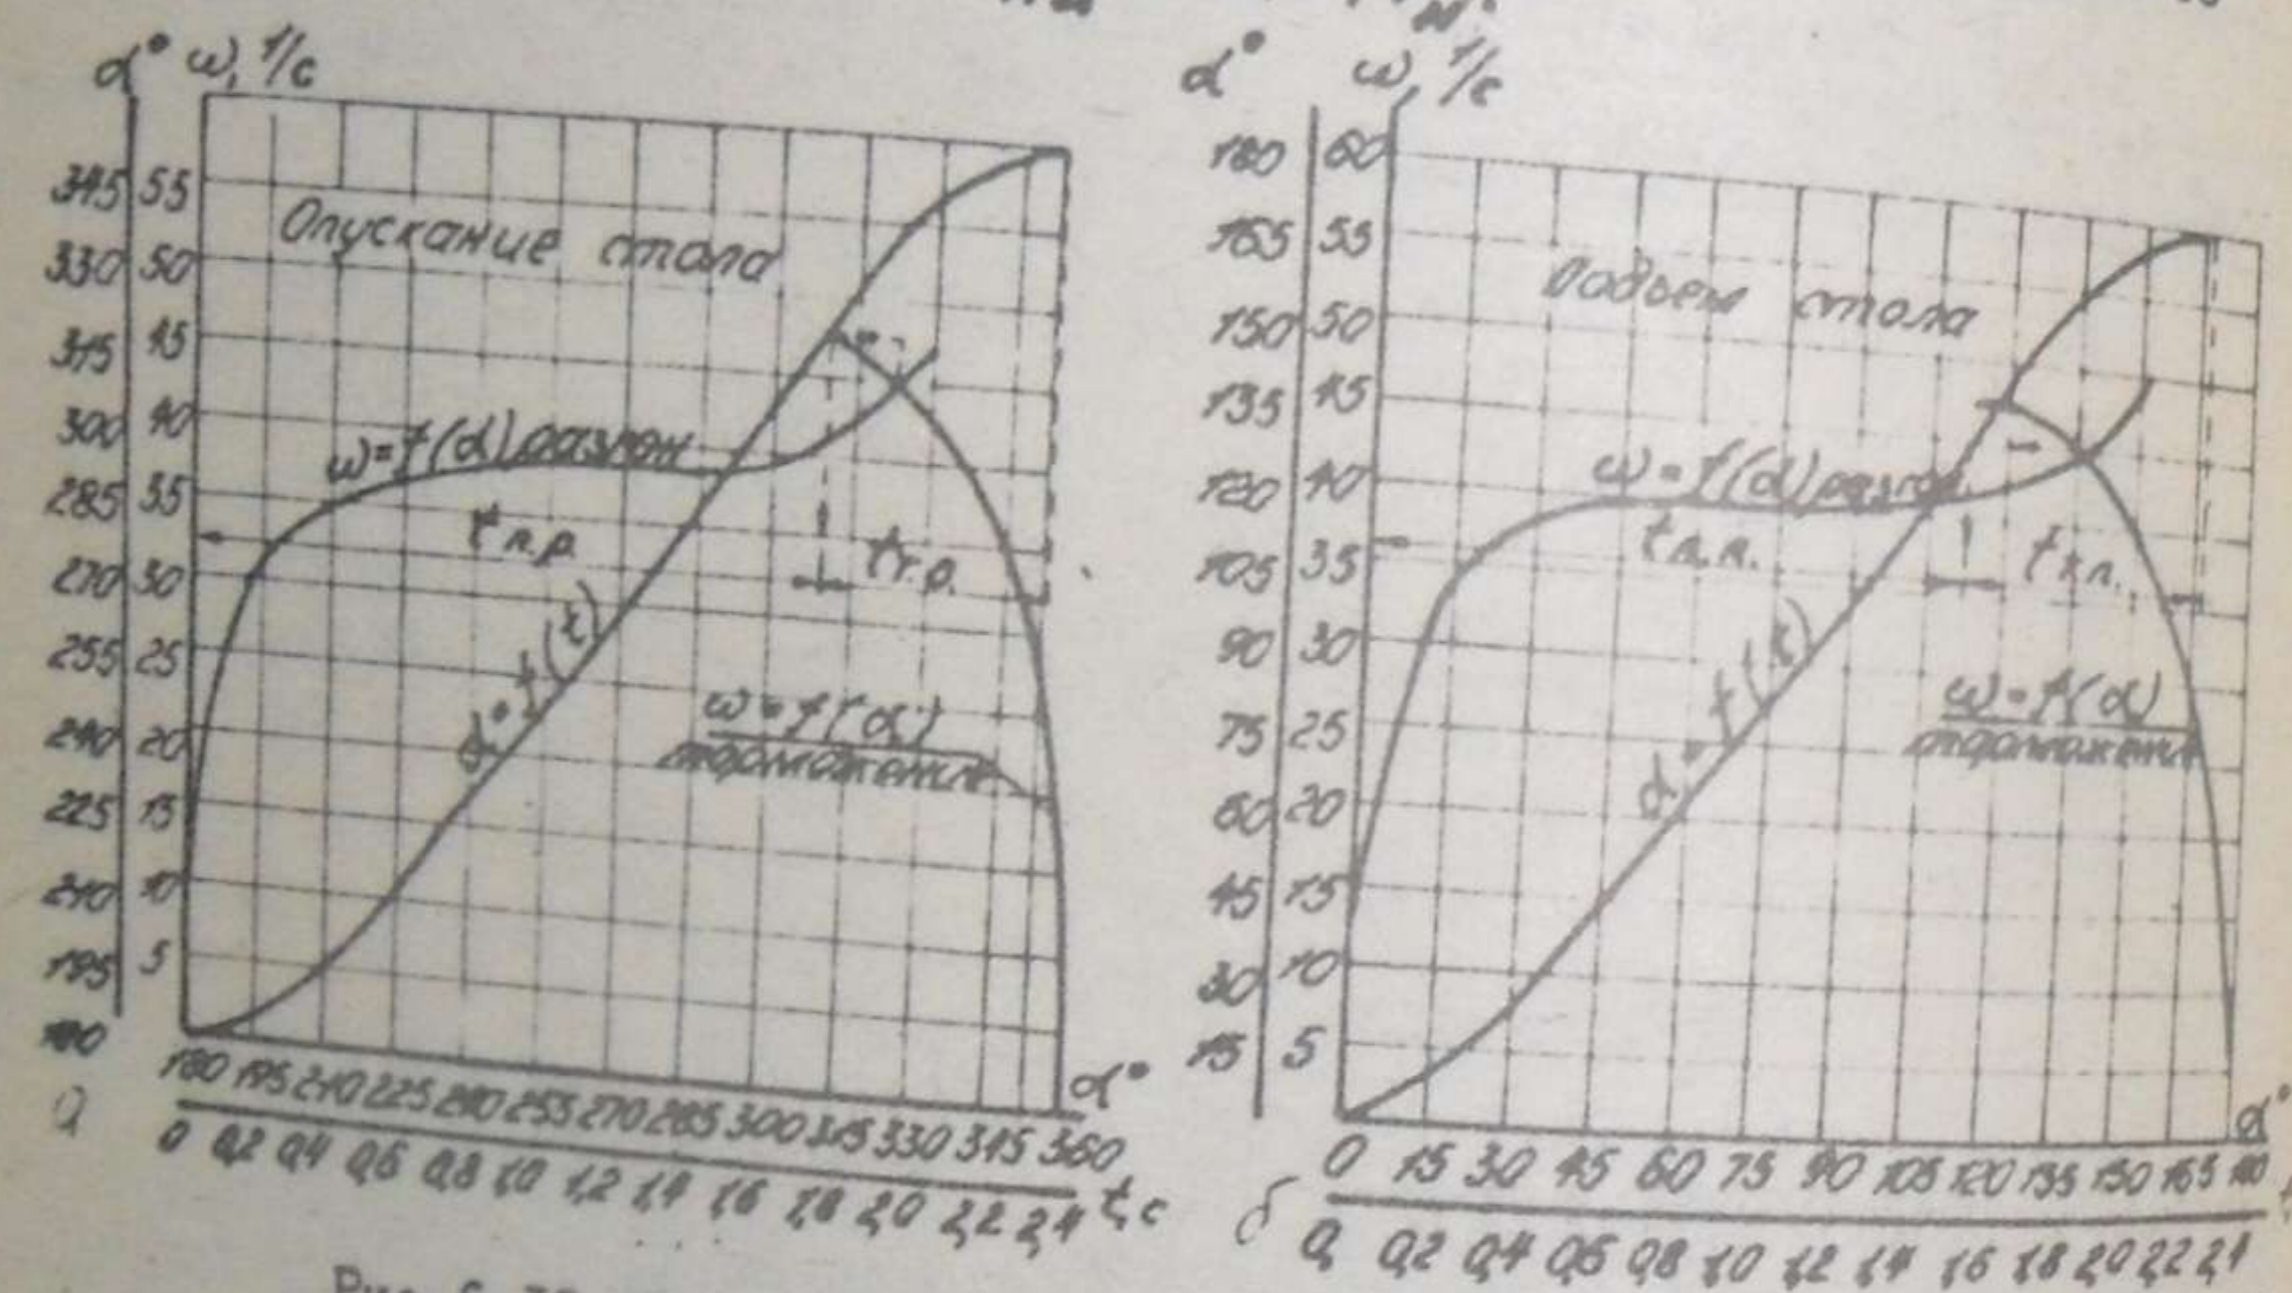 α° ω, 1/с
345 55
330 50
315 45
300 40
285 35
270 30
255 25
240 20
225 15
210 10
195 5
180
Опускание стола
ω=f(α) разгон
tп.р.
tт.р.
α=f(t)
ω=f(α)
торможение
180 195 210 225 240 255 270 285 300 315 330 345 360
α°
0 0,2 0,4 0,6 0,8 1,0 1,2 1,4 1,6 1,8 2,0 2,2 2,4 t,с
а
α° ω, 1/с
180 60
165 55
150 50
135 45
120 40
105 35
90 30
75 25
60 20
45 15
30 10
15 5
Подъем стола
ω=f(α) разгон
tп.п.
tт.п.
α=f(t)
ω=f(α)
торможение
α°
0 15 30 45 60 75 90 105 120 135 150 165 180
0, 0,2 0,4 0,6 0,8 1,0 1,2 1,4 1,6 1,8 2,0 2,2 2,4
б
Рис.